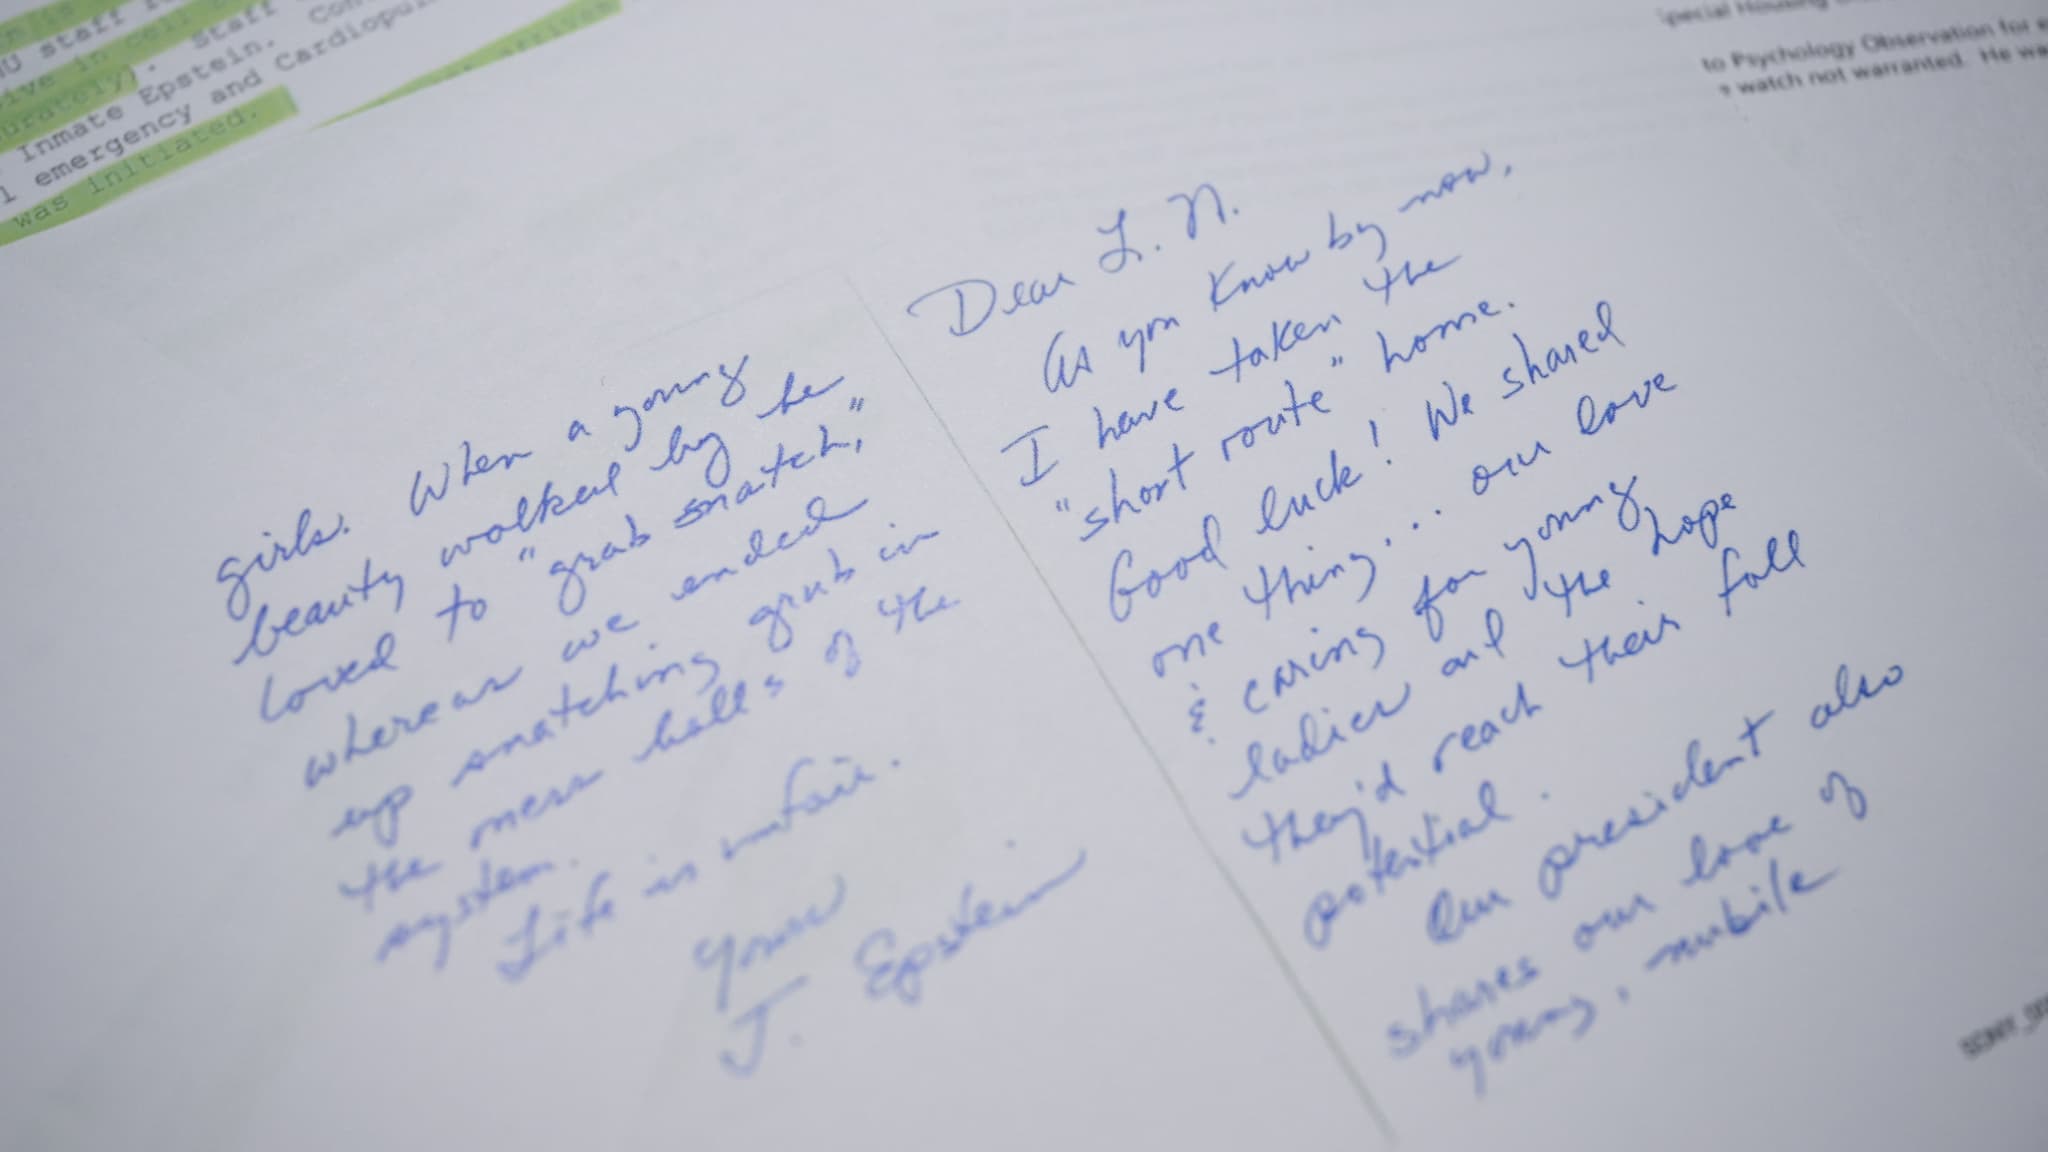 U staff
Staff
Inmate Epstein.
emergency and Cardiopul
was initiated.
Special Housing
to Psychology Observation for
watch not warranted. He wa
Dear L. N.
As you know by now,
I have taken the
"short route" home.
Good luck! We shared
one thing... our love
& caring for young
ladies and the hope
they'd reach their full
potential.
Our president also
shares our love of
young, nubile
girls. When a young
beauty walked by he
loved to "grab snatch,"
whereas we ended
up snatching grub in
the mess halls of the
system.
Life is unfair.
Yours
J. Epstein